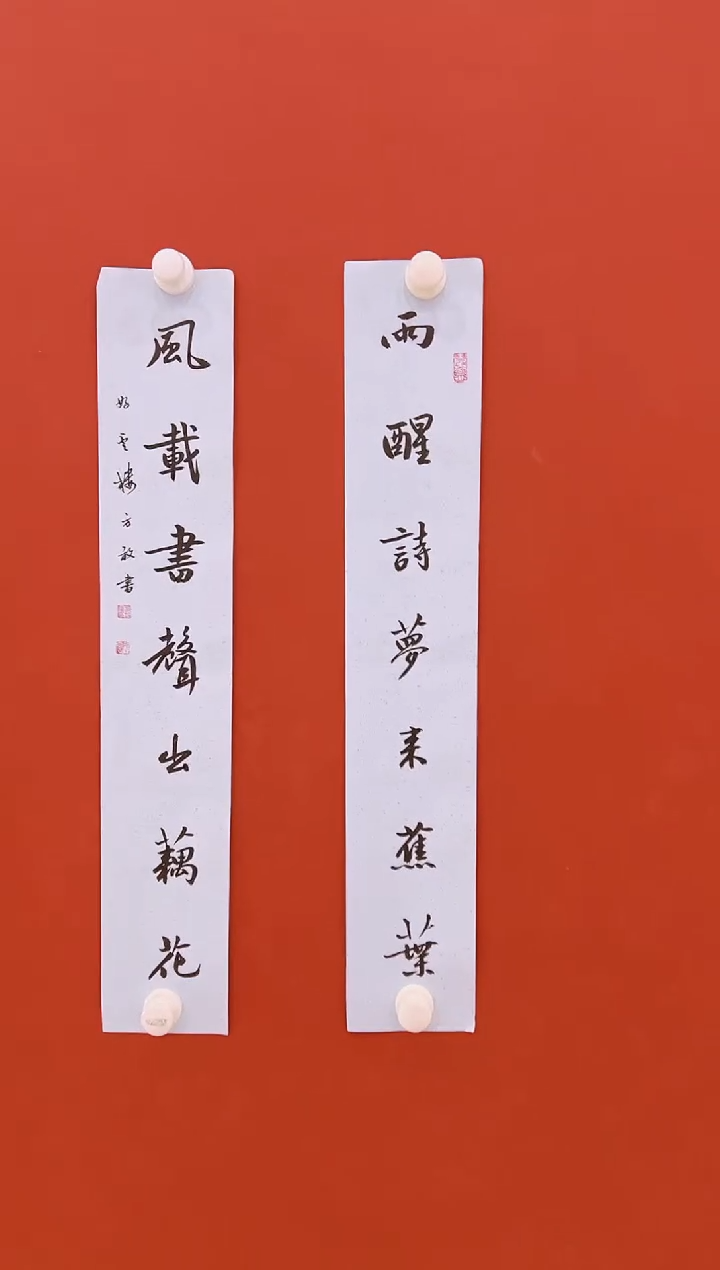 雨醒詩夢来蕉葉
風載書聲出藕花
方敬書